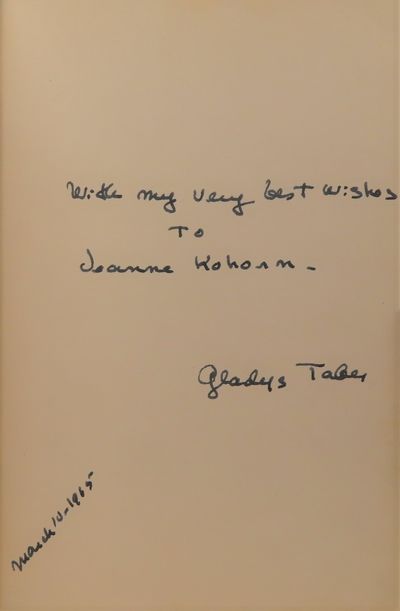 With my very best wishes
To
Joanne Kohorn -
Gladys Taber
March 10-1965